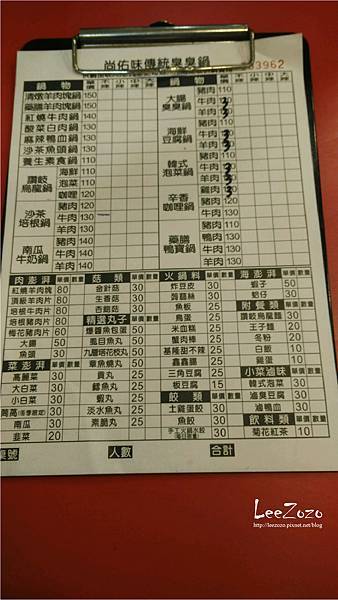 尚佑味傳統臭臭鍋
3962
鍋物 單價 不辣 小辣 中辣 大辣
清燉羊肉塊鍋 150
藥膳羊肉塊鍋 150
紅燒牛肉鍋 130
酸菜白肉鍋 130
麻辣鴨血鍋 130
沙茶魚頭鍋 130
養生素食鍋 130
讚岐烏龍鍋
海鮮 110
豬肉 110
沙茶培根鍋
豬肉
牛肉 130
羊肉 130
南瓜牛奶鍋
豬肉 140
牛肉 140
羊肉 140
鍋物 單價 不辣 小辣 中辣 大辣
大腸臭臭鍋
豬肉 110
牛肉
羊肉
海鮮豆腐鍋
豬肉 110
牛肉
羊肉
韓式泡菜鍋
豬肉 110
牛肉
羊肉
辛香咖哩鍋
雞肉
豬肉 120
牛肉 130
羊肉 130
藥膳鴨寶鍋
豬肉 110
鴨肉 130
羊肉 130
肉澎湃 單價 數量
紅燒羊肉塊 80
頂級羊肉片 80
培根牛肉片 80
培根豬肉片 60
梅花豬肉片 60
大腸 50
魚頭 30
菜澎湃 單價 數量
高麗菜 30
大白菜 30
小白菜 30
茼萵(冬季限定) 30
南瓜 30
韭菜 20
菇類 單價 數量
金針菇 30
生香菇 30
杏鮑菇 30
精選丸子 單價 數量
爆醬魚包蛋 50
虱目魚丸 50
九層塔花枝丸 50
章魚燒丸 50
貢丸 30
鱈魚丸 30
蝦丸 30
淡水魚丸 30
素脆丸 30
火鍋料 單價 數量
炸豆皮 30
蒟蒻絲 30
魚板 30
鳥蛋 30
米血糕 30
蟹肉棒 30
基隆甜不辣 30
鑫鑫腸 30
三角豆腐 30
板豆腐 15
餃類 單價 數量
土雞蛋餃 30
魚餃 30
手工火鍋水餃(每日限量) 30
海澎湃 單價 數量
蝦子 50
蛤仔 50
附餐類 單價 數量
讚岐烏龍麵 30
王子麵 20
冬粉 20
白飯 10
雞蛋 10
小菜滷味 單價 數量
韓式泡菜 30
滷臭豆腐 30
滷鴨血 30
飲料類 單價 數量
菊花紅茶 10
桌號 人數 合計
LeeZozo
http://leezozo.pixnet.net/blog